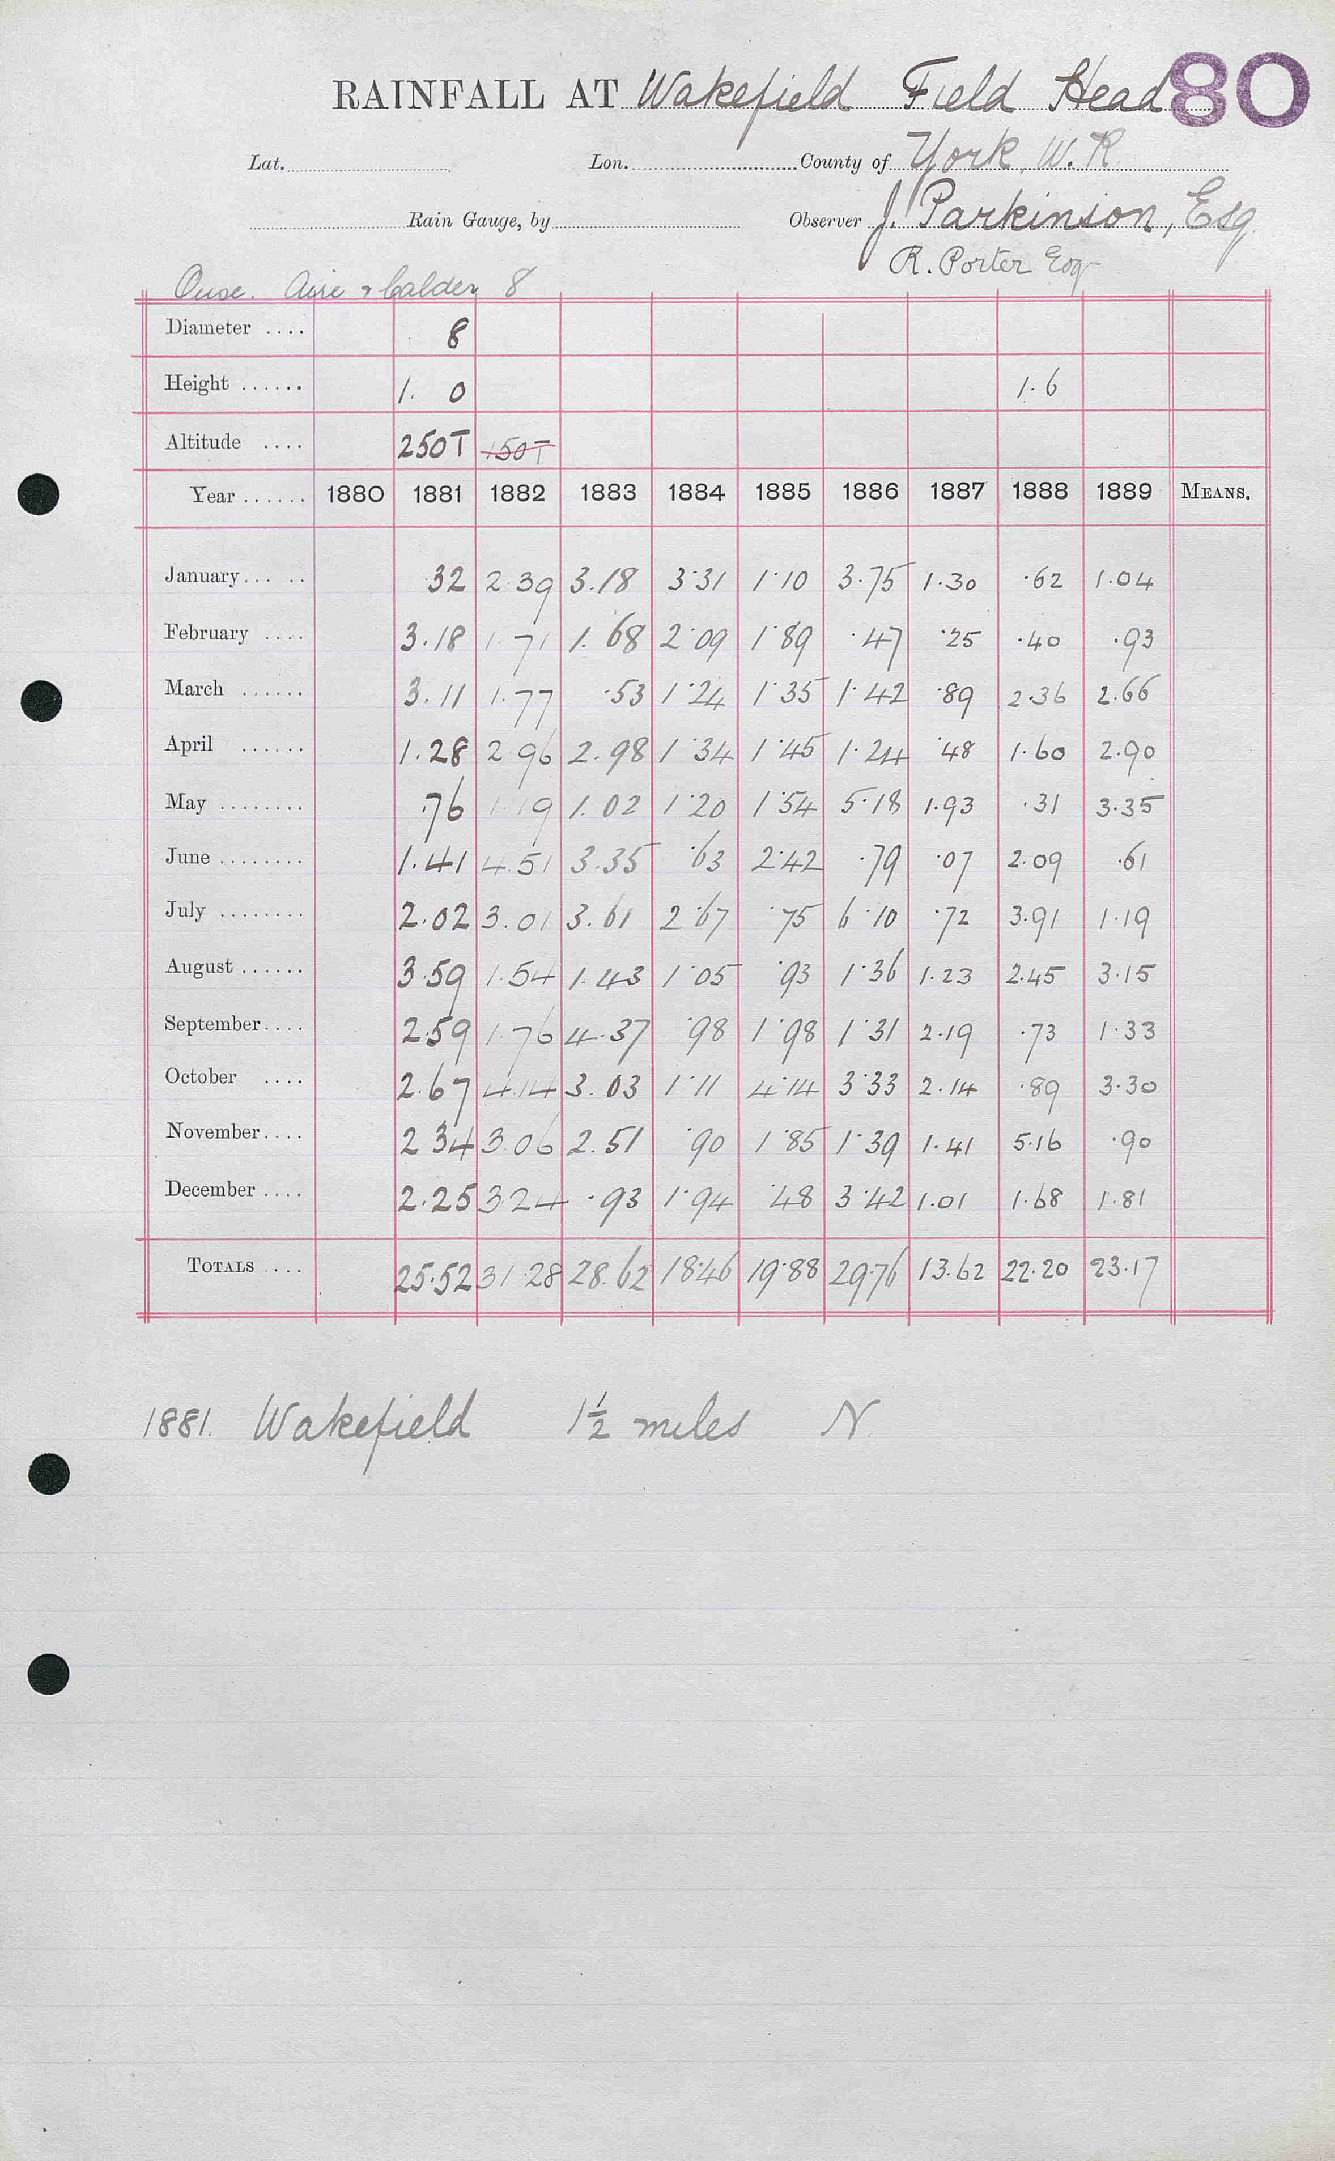 RAINFALL AT Wakefield Field Head 80
Lat. Lon. County of York, W. R
Rain Gauge, by Observer J. Parkinson, Esq.
R. Porter Esq
Ouse. Aire & Calder 8
Diameter .... 8
Height ...... 1. 0 1.6
Altitude .... 250T 150T
Year ...... 1880 1881 1882 1883 1884 1885 1886 1887 1888 1889 MEANS.
January... .. 32 2.39 3.18 3.31 1.10 3.75 1.30 .62 1.04
February .... 3.18 1.71 1.68 2.09 1.89 .47 .25 .40 .93
March ...... 3.11 1.77 .53 1.24 1.35 1.42 .89 2.36 2.66
April ...... 1.28 2.96 2.98 1.34 1.45 1.24 .48 1.60 2.90
May ........ .76 1.19 1.02 1.20 1.54 5.18 1.93 .31 3.35
June ........ 1.41 4.51 3.35 .63 2.42 .79 .07 2.09 .61
July ........ 2.02 3.01 3.61 2.67 .75 6.10 .72 3.91 1.19
August ...... 3.59 1.54 1.43 1.05 .93 1.36 1.23 2.45 3.15
September.... 2.59 1.76 4.37 .98 1.98 1.31 2.19 .73 1.33
October .... 2.67 4.14 3.03 1.11 4.14 3.33 2.14 .89 3.30
November.... 2 34 3.06 2.51 .90 1.85 1.39 1.41 5.16 .90
December .... 2.25 3 24 .93 1.94 .48 3.42 1.01 1.68 1.81
TOTALS .... 25.52 31 28 28.62 18.46 19.88 29.76 13.62 22.20 23.17
1881. Wakefield 1½ miles N.